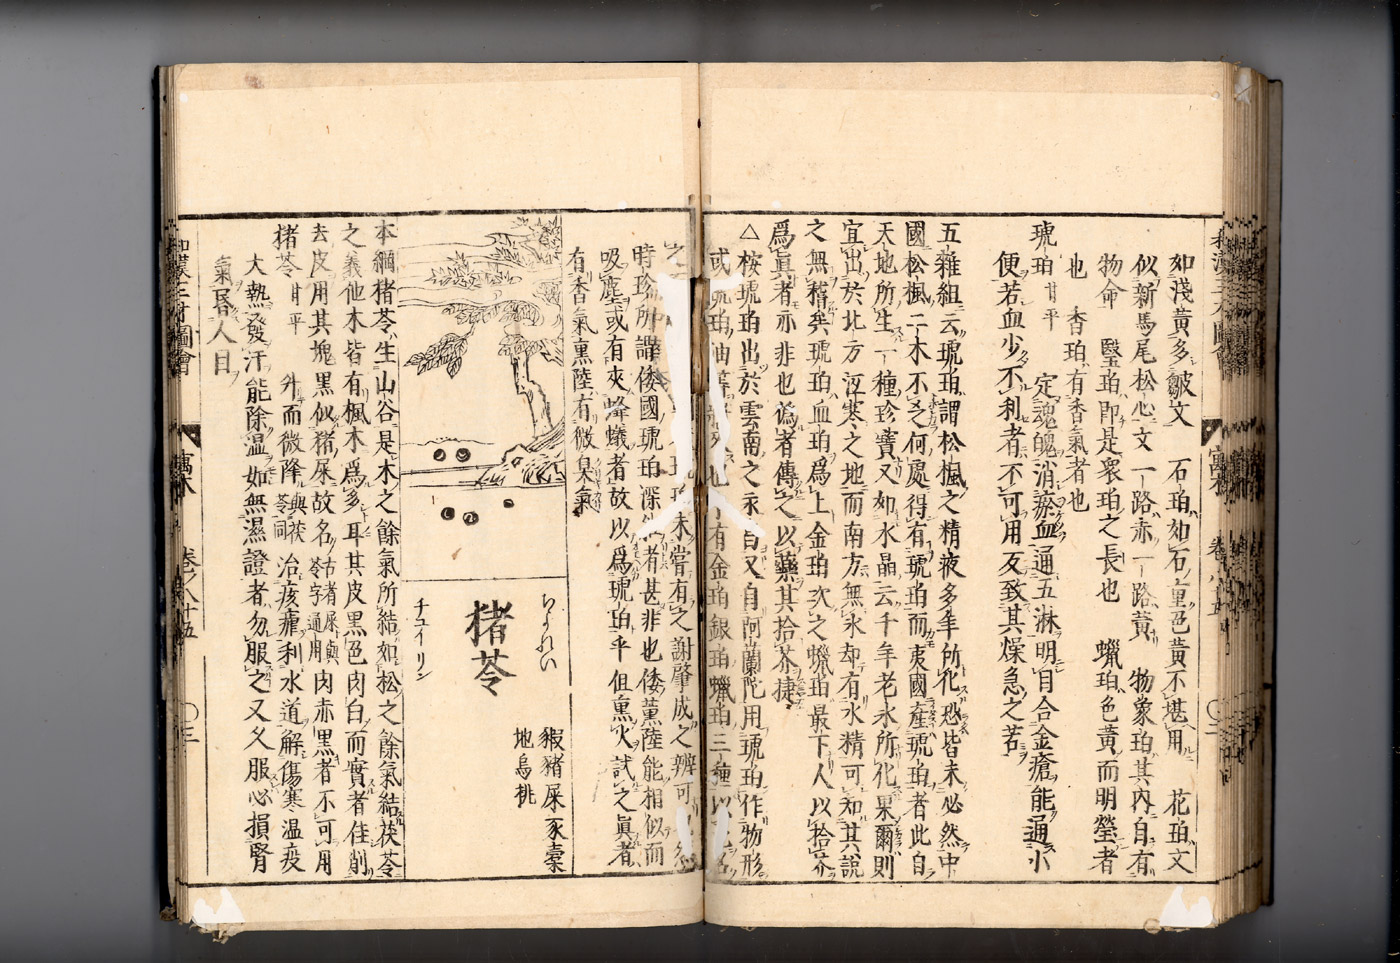 如淺黃多皺文　石珀如石重色黃不堪用　花珀文
似新馬尾松心文一路赤一路黃　物象珀其內自有
物命　瑿珀即是衆珀之長也　蠟珀色黃而明瑩者
也　香珀有香氣者也
琥珀甘平　定魂魄消瘀血通五淋明目合金瘡能通小
便若血少不利者不可用反致其燥急之苦
五雜組云琥珀謂松楓之精液多年所化恐皆未必然中
國松楓二木不乏何處得有琥珀而夷國產琥珀者此自
天地所生一種珍寶又如水晶云千年老氷所化果爾則
宜出於北方沍寒之地而南方無氷却有水精可知其說
之無稽矣琥珀血珀爲上金珀次之蠟珀最下人以拾芥
爲眞者亦非也僞者傳之以藥其拾芥捷
△桉琥珀出於雲南之永昌又自阿蘭陀用琥珀作物形
或琥珀油等 有金珀銀珀蠟珀三種以
未嘗有之謝肇淛之辨可
時珍所謂倭國琥珀深 者甚非也倭薰陸能相似而
吸塵或有夾蜂蟻者故以爲琥珀乎但熏火試之眞者
有香氣熏陸有微臭氣
猪苓
ちよれい
チユイリン
豭豬屎 豕橐
地烏桃
本綱猪苓生山谷是木之餘氣所結如松之餘氣結茯苓
之義他木皆有楓木爲多耳其皮黒色肉白而實者佳削
去皮用其塊黒似猪屎故名 古者屎與苓字通用 肉赤黒者不可用
猪苓甘平　升而微降 與茯苓同 治痎瘧利水道解傷寒溫疫
大熱發汗能除濕如無濕證者勿服之又久服必損腎
氣昬人目
和漢三才圖會
寓木
卷之八十五
〇三